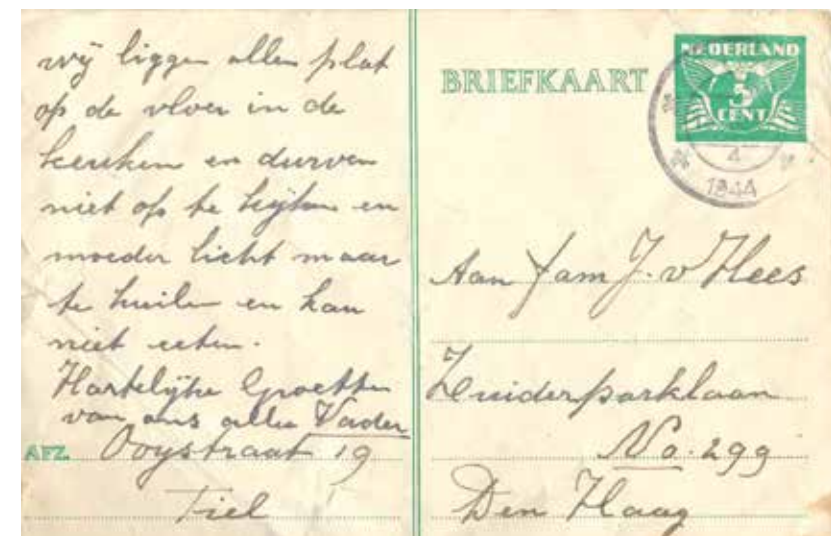 wij liggen allen plat
op de vloer in de
keuken en durven
niet op te kijken en
moeder licht maar
te huilen en kan
niet eeten.
Hartelijke Groetten
van ons allen Vader
AFZ. Ooystraat 19
Tiel
BRIEFKAART
NEDERLAND
5
CENT
4
1944
Aan fam J. v Hees
Zuiderparklaan
No. 299
Den Haag